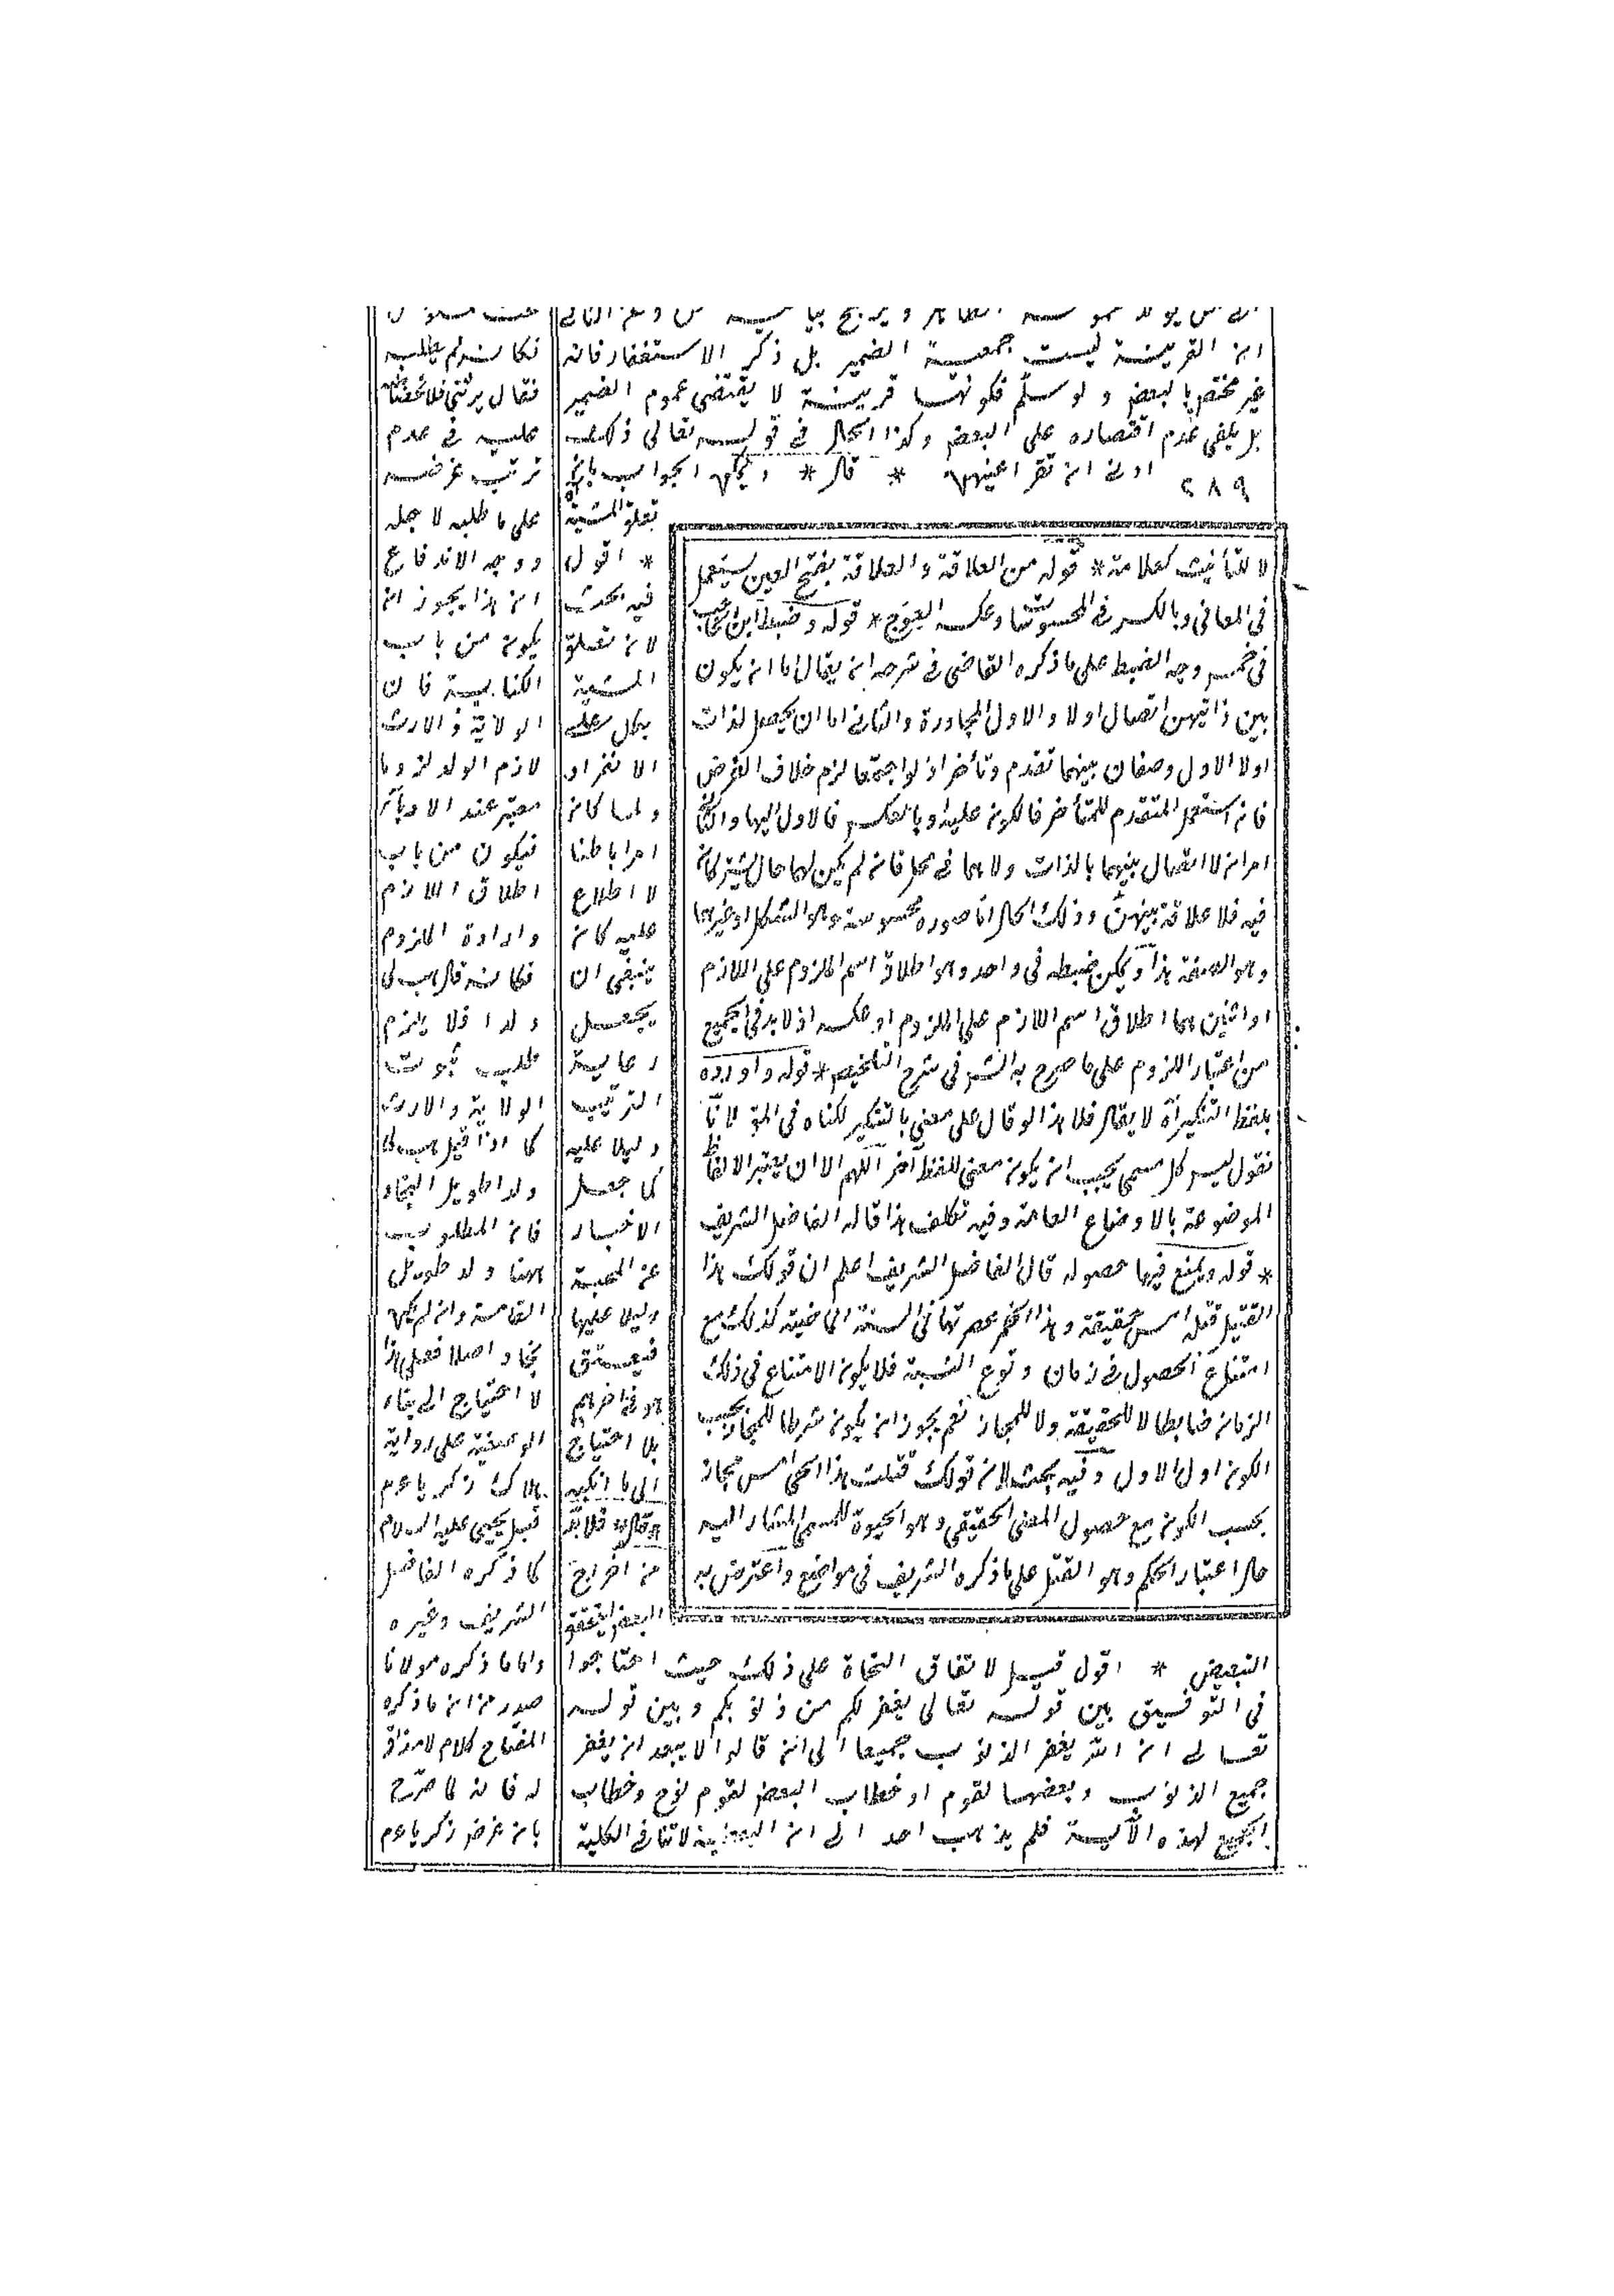 ان القرينة ليست جمعية الضمير بل ذكر الاستغفار فانه
غير مختص بالبعض ولو سلم فكونها قرينة لا يقتضى عموم الضمير
بل يكفى عدم اقتصاره على البعض وكذا الحال فى قوله تعالى ذلك
ادنى ان تقر اعينهن * قال * ويمكن الجواب بان
٢٨٩
تعلق المشية
* اقول
فيه بحث
لان تعلق
المشية
بكل على
الانفراد
ولما كان
امرا باطنا
لا اطلاع
عليه كان
ينبغى ان
يجعل
رعاية
الترتيب
دليلا عليه
كما جعل
الاخبار
عن المحبة
دليلا عليها
فيعتق
هو فى اخرهم
بلا احتياج
الى ما ارتكبه
* قال * فلابد
من اخراج
البعض ليتحقق
التبعيض * اقول قيل لاتفاق النحاة على ذلك حيث احتاجوا
فى التوفيق بين قوله تعالى يغفر لكم من ذنوبكم وبين قوله
تعالى ان الله يغفر الذنوب جميعا الى ان قالوا لا يبعد ان يغفر
جميع الذنوب وبعضها لقوم او خطاب البعض لقوم نوح وخطاب
الجميع لهذه الآية فلم يذهب احد الى ان البعضية لا تنافى الكلية
لا للتأنيث كعلامة * قوله من العلاقة والعلاقة بفتح العين يستعمل
فى المعانى وبالكسر فى المحسوسات وعكسه العوج * قوله وضبط ابن الحاجب
فى خمس وجه الضبط على ما ذكره القاضى فى شرحه ان يقال اما ان يكون
بين ذاتيهن اتصال اولا والاول المجاورة والثانى اما ان يحصل لذات
اولا الاول وصفان بينهما تقدم وتأخر اذ لو اجتمعا لزم خلاف الفرض
فان استعمل المتقدم للمتأخر فالكون عليه او بالعكس فالاول اليها والثانى
امران لا اتصال بينهما بالذات ولا هما فى محل فان لم يكن لهما حال يشتركان
فيه فلا علاقة بينهن وذلك الحال اما صورة محسوسة وهو الشكل او غيرها
وهو الصفة هذا ويمكن ضبطه فى واحد وهو اطلاق اسم الملزوم على اللازم
او اثنين هما اطلاق اسم اللازم على الملزوم او عكسه اذ لابد فى الجميع
من اعتبار اللزوم على ما صرح به الش فى شرح التلخيص * قوله واورده
بلفظ التنكير آه لا يقال فلا هذا لو قال على معنى بالتنكير لكناه فى المق لانا
نقول ليس كل مسمى يجب ان يكون معنى للفظ آخر اللهم الا ان يعتبر الالفاظ
الموضوعة بالاوضاع العامة وفيه تكلف هذا قاله الفاضل الشريف
* قوله ويمنع فيها حصوله قال الفاضل الشريف اعلم ان قولك هذا
القتيل قتله امس حقيقة وهذا الخمر عصرتها فى السنة الماضية كذلك مع
امتناع الحصول فى زمان وقوع النسبة فلا يكون الامتناع فى ذلك
الزمان ضابطا لا للحقيقة ولا للمجاز نعم يجوز ان يكون شرطا للمجاز بحسب
الكون اول الاول وفيه بحث لان قولك قتلت هذا الحى امس مجاز
بحسب الكون مع حصول المعنى الحقيقى وهو الحيوة للمسمى المشار اليه
حال اعتبار الحكم وهو القتل على ما ذكره الشريف فى مواضع واعترض به
فكان لم يطلب
فقال يرثنى فلا
عليه فى عدم
ترتب غرضه
على ما طلبه لاجله
ووجه الاندفاع
ان هذا يجوز ان
يكون من باب
الكناية فان
الولاية والارث
لازم الولد لزوما
معتبر عند الادباء
فيكون من باب
اطلاق اللازم
وارادة الملزوم
فكانه قال هب لى
ولدا فلا يلزم
طلب ثبوت
الولاية والارث
كما اذا قيل هب لى
ولدا طويل النجاد
فان المطلوب
ههنا ولد طويل
القامة وان لم يكن
نجاد اصلا فعلى هذا
لا احتياج الى بناء
الوصفية على رواية
هلاك زكريا عم
قبل يحيى عليه السلام
كما ذكره الفاضل
الشريف وغيره
واما ما ذكره مولانا
صدر من ان ما ذكره
المفتاح كلام لا مذاق
له فانه لما صرح
بان غرض زكريا عم